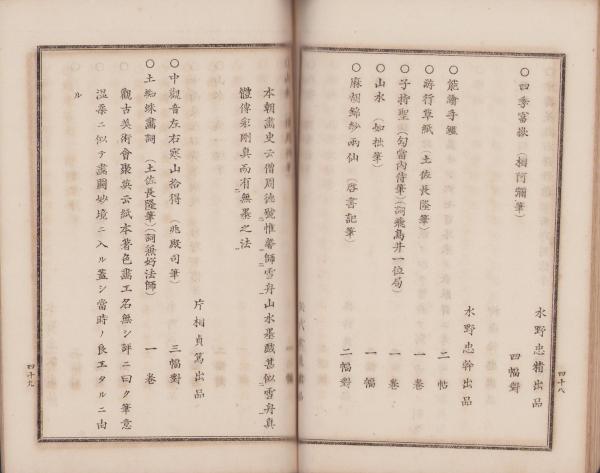 水野忠精出品
○四季富嶽(相阿彌筆) 四幅對
水野忠幹出品
○能繪手鑑 二帖
○游行草紙(土佐長隆筆) 一卷
○子持聖(勾當內侍筆)(詞飛鳥井一位局) 一卷
○山水(如拙筆) 一幅
○麻胡錦紗兩仙(啓書記筆) 二幅對
四十八
本朝畫史云僧周德號惟馨師雪舟山水墨戲甚似雪舟眞
體傳彩剛眞而有無墨之法
片桐貞篤出品
○中觀音左右寒山拾得(兆殿司筆) 三幅對
○土蜘蛛畫詞(土佐長隆筆)(詞兼好法師) 一卷
觀古美術會聚英云紙本著色畫工名無シ評ニ曰ク筆意
溫柔ニ似テ畫圖妙境ニ入ル蓋シ當時ノ良工タルニ由
ル
四十九